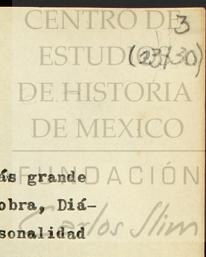 3
(23/30)
CENTRO DE
ESTUDIOS
DE HISTORIA
DE MEXICO
FUNDACIÓN
Carlos Slim
ás grande
obra, Diá-
sonalidad